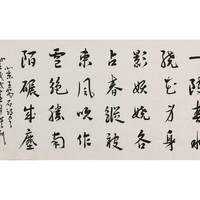 一陂春水
繞花身花
影妖嬈各
占春縱被
東風吹作
雪絕勝南
陌碾成塵